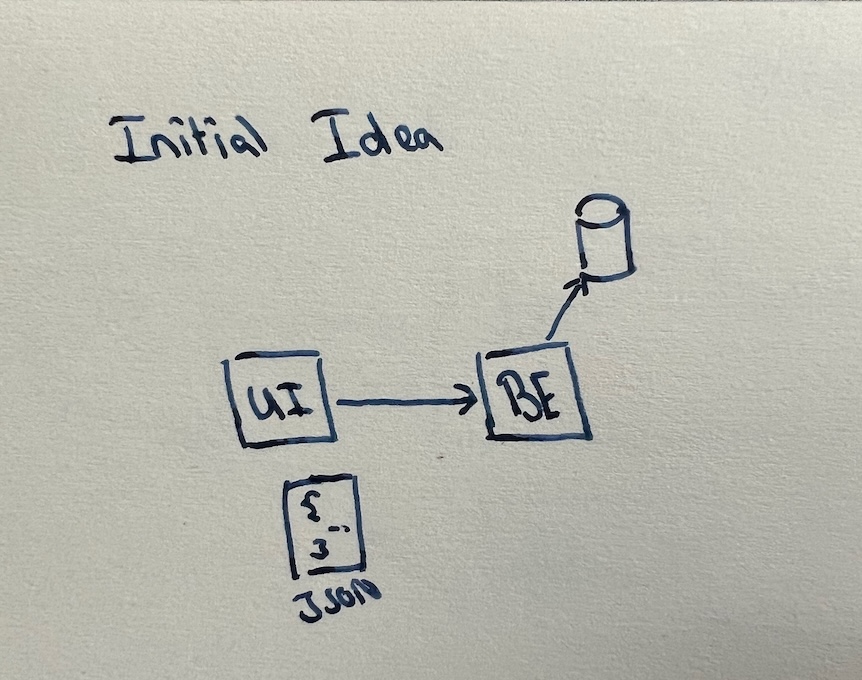 Initial Idea
UI
BE
{
..
}
JSON